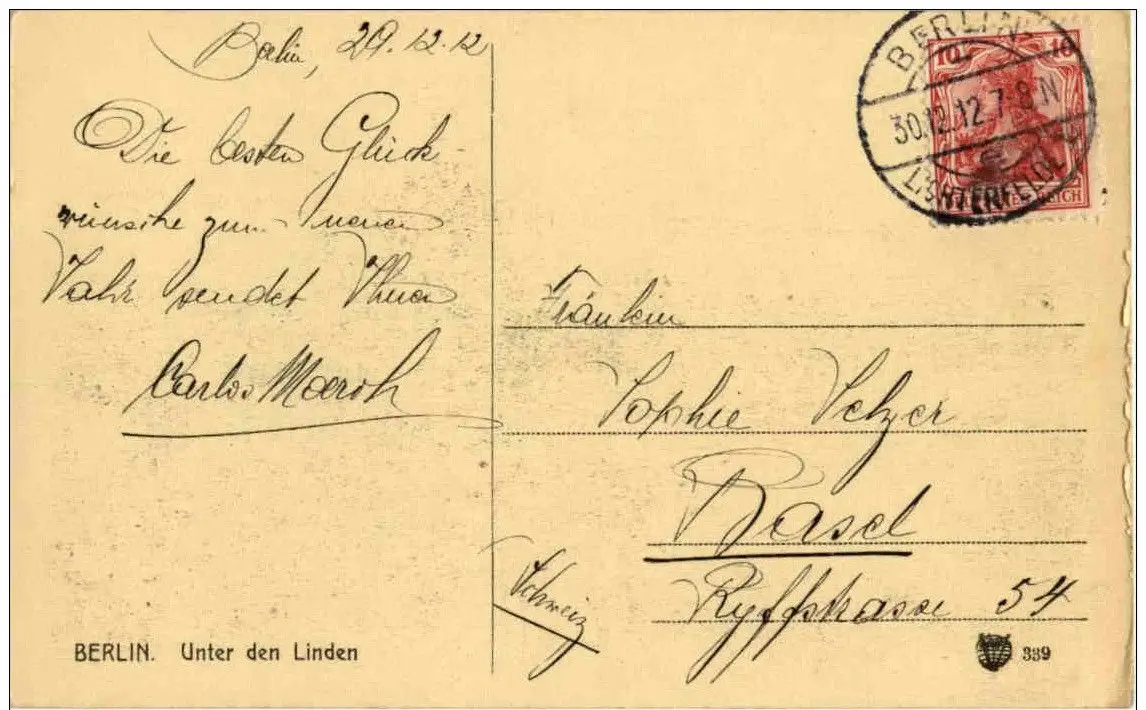 Berlin, 29.12.12
Die besten Glück-
wünsche zum neuen
Jahr sendet Ihnen
Carlos
BERLIN. Unter den Linden
10 10
BERLIN
30.12.12.7-8N
LICHTERFELDE
REICH
Fräulein
Sophie Selzer
Basel
Ryffstrasse 54
Schweiz
339